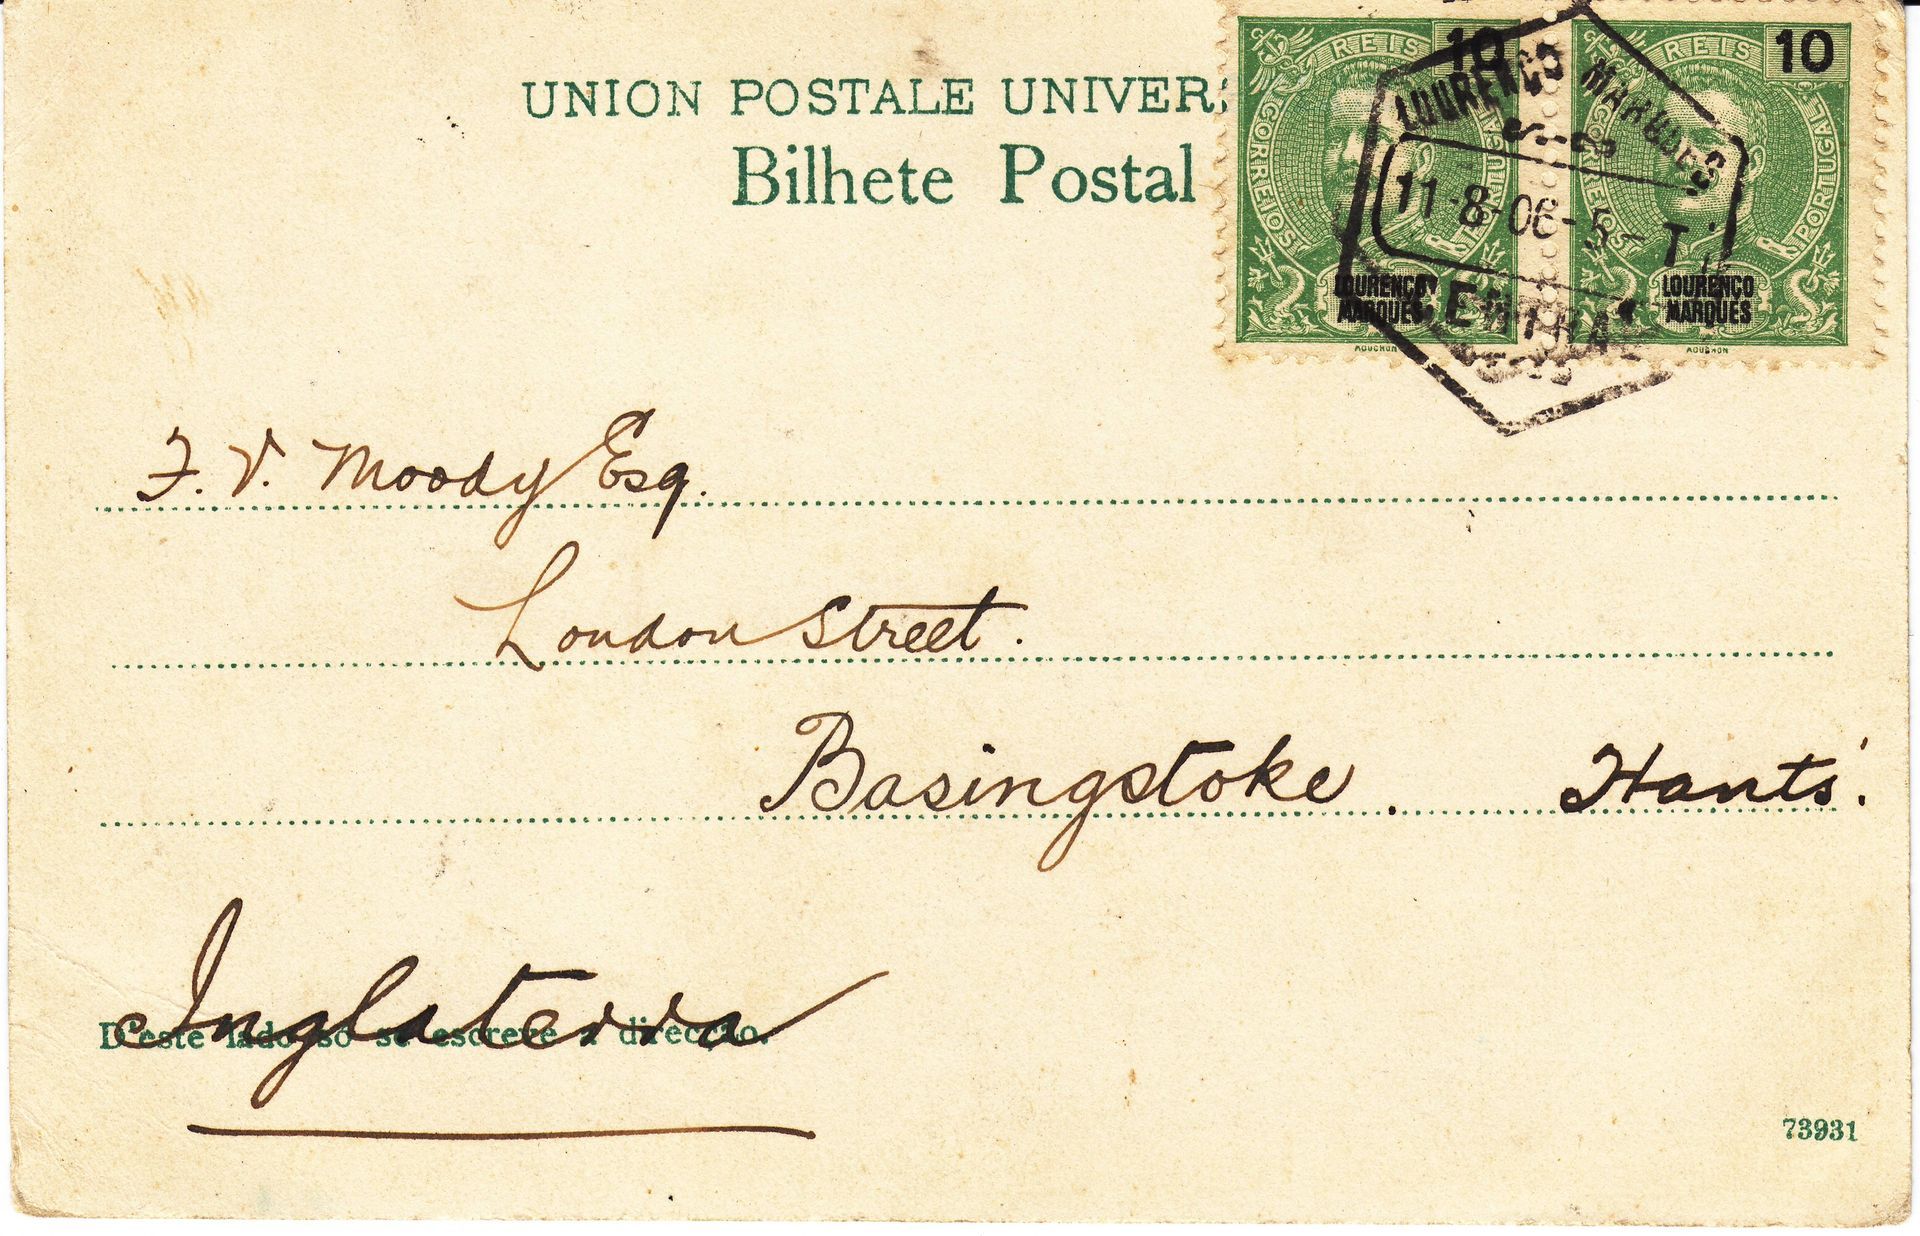 UNION POSTALE UNIVERS
Bilhete Postal
REIS 10
CORREIOS PORTUGAL
LOURENÇO
MARQUES
MOUCHON
REIS 10
CORREIOS PORTUGAL
LOURENÇO
MARQUES
MOUCHON
LOURENÇO MARQUES
11-8-06-5-T
CENTRAL
F. V. Moody Esq.
London Street.
Basingstoke. Hants.
Inglaterra
D'este lado só se escreve a direcção.
73931